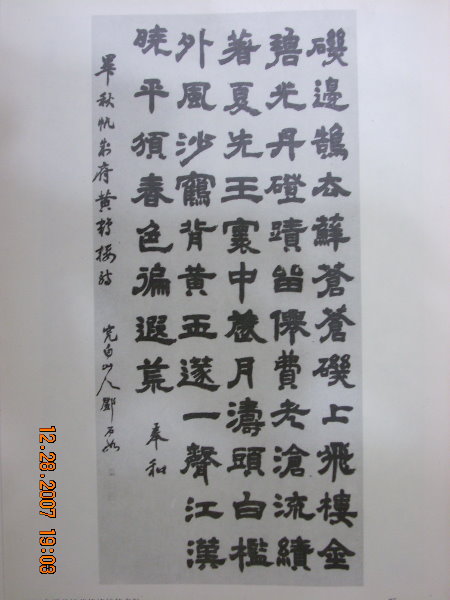 磯邊鵠蘚蒼蒼磯上飛樓金
碧光丹磴蹟留僊費老滄流績
著夏先王寰中歲月濤頭白檻
外風沙鶴背黃玉篴一聲江漢
曉平頒春色徧遐荒
奉和
畢秋帆制府黃鶴樓詩
完白山人鄧石如
12.28.2007 19:03